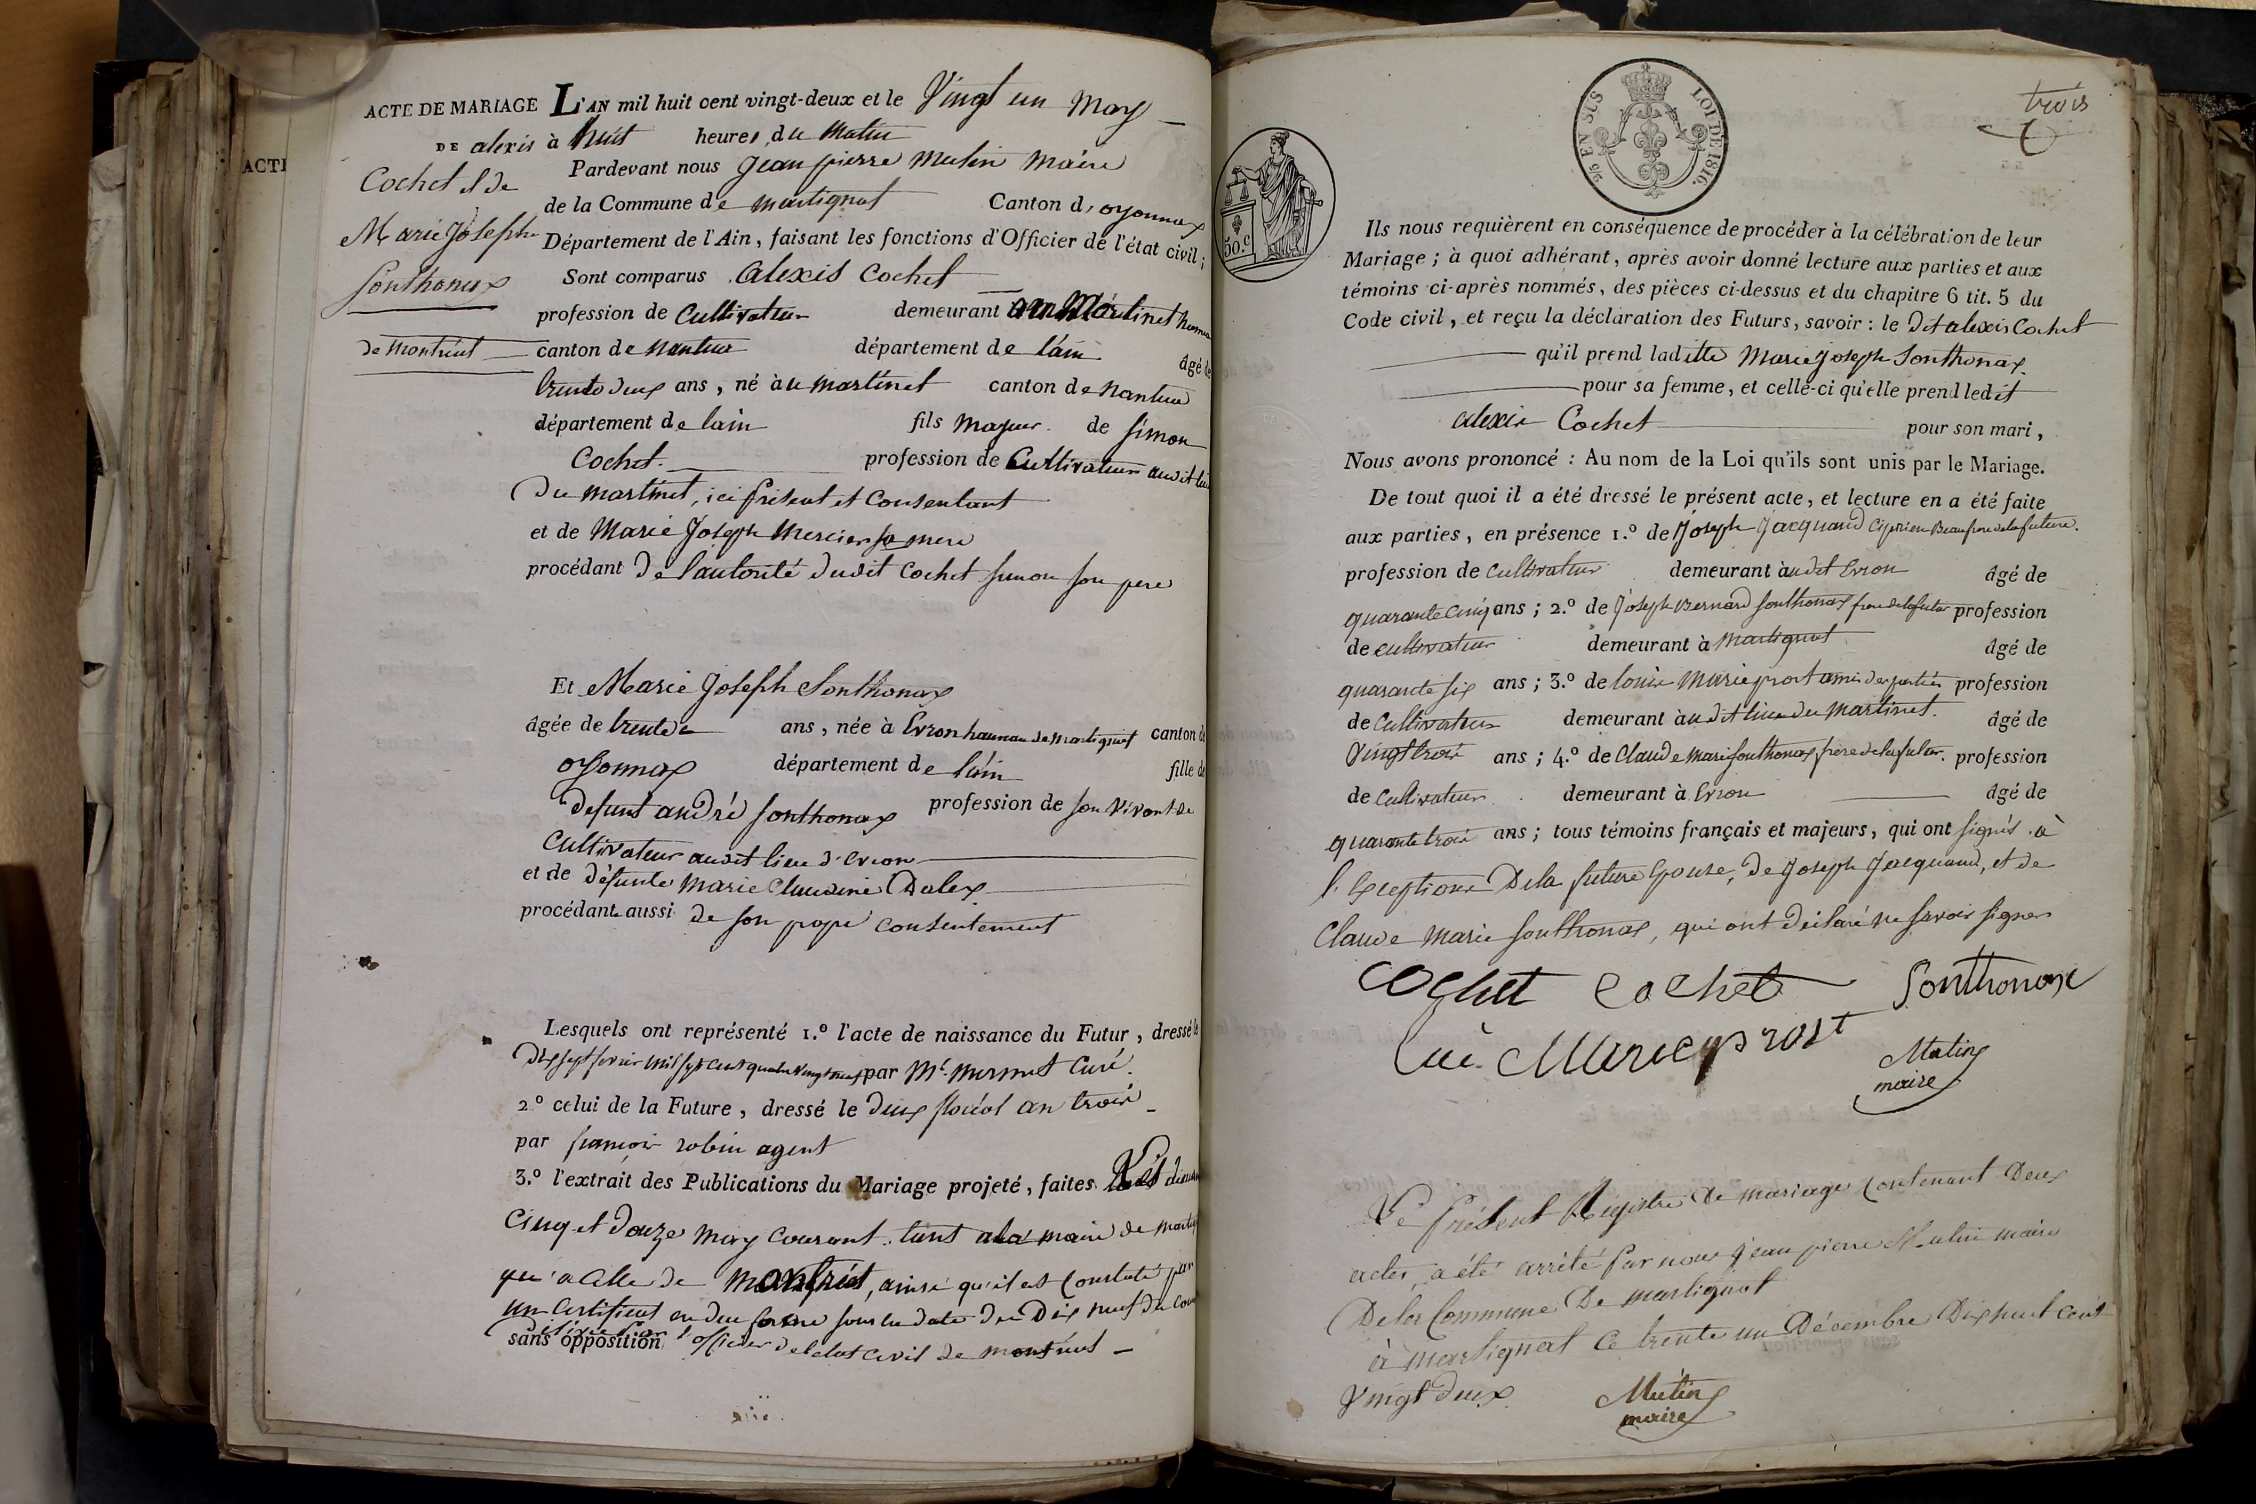 ACTI
ACTE DE MARIAGE
DE alexis
Cochet et de
Marie Joseph
Sonthonax
de montréat
L'AN mil huit cent vingt-deux et le Vingt un May
à huit heures du Matin
Pardevant nous Jean pierre Mutin Maire
de la Commune de martignat Canton d'oyonnax
Département de l'Ain, faisant les fonctions d'Officier de l'état civil;
Sont comparus alexis Cochet
profession de Cultivateur demeurant au Martinet hameau
canton de nantua département de l'ain âgé de
trente deux ans, né au martinet canton de nantua
département de l'ain fils majeur de Simon
Cochet. profession de Cultivateur audit lieu
du martinet, ici présent et Consentant
et de Marie Joseph Mercier sa mere
procédant de l'autorité dudit Cochet simon son pere
Et Marie Joseph Sonthonax
âgée de trente ans, née à Evron hameau de Martignat canton de
oyonnax département de l'ain fille de
défunt andré Sonthonax profession de son vivant de
Cultivateur audit lieu d'evron
et de défunte marie Claudine Dalex
procédante aussi de son propre consentement
Lesquels ont représenté 1.º l'acte de naissance du Futur, dressé le
Dix sept fevrier mil sept cent quatre vingt neuf par Mr. mermet Curé.
2.º celui de la Future, dressé le deux floréal an trois
par françois robin agent
3.º l'extrait des Publications du Mariage projeté, faites Les dimanches
Cinq et douze may courant tant a la mairie de Martignat
qu'a celle de Montréat, ainsi qu'il est Constaté par
un certificat en due forme sous la date du Dix neuf du courant
délivré par l'officier de l'etat civil de montréat
sans opposition
trois
95 EN SUS LOI DE 1816.
50.c
Ils nous requièrent en conséquence de procéder à la célébration de leur
Mariage; à quoi adhérant, après avoir donné lecture aux parties et aux
témoins ci-après nommés, des pièces ci-dessus et du chapitre 6 tit. 5 du
Code civil, et reçu la déclaration des Futurs, savoir: le dit alexis Cochet
qu'il prend ladite Marie Joseph Sonthonax
pour sa femme, et celle-ci qu'elle prend ledit
alexis Cochet pour son mari,
Nous avons prononcé: Au nom de la Loi qu'ils sont unis par le Mariage.
De tout quoi il a été dressé le présent acte, et lecture en a été faite
aux parties, en présence 1.º de Joseph Jacquand Ciprien Beaufrere de la future.
profession de cultivateur demeurant audit Evron âgé de
quarante cinq ans; 2.º de Joseph Bernard Sonthonax frere de la futur profession
de cultivateur demeurant à Martignat âgé de
quarante six ans; 3.º de louis Marie prost amis des parties profession
de Cultivateur demeurant audit lieu du Martinet. âgé de
Vingt trois ans; 4.º de Claude Marie Sonthonax frere de la futur. profession
de Cultivateur demeurant à Evron âgé de
quarante trois ans; tous témoins français et majeurs, qui ont signés à
l'exceptions De la future Epouse, de Joseph Jacquand, et de
Claude Marie Sonthonax, qui ont déclaré ne savoir signer
Cochet Cochet Sonthonax
Lui Marie prost Mutin
maire
Le présent Registre de mariage Contenant Deux
actes, a été arrêté par nous jean pierre Mutin maire
De la Commune De martignat
à martignat Ce trente un Décembre Dix huit cent
Vingt deux. Mutin
maire